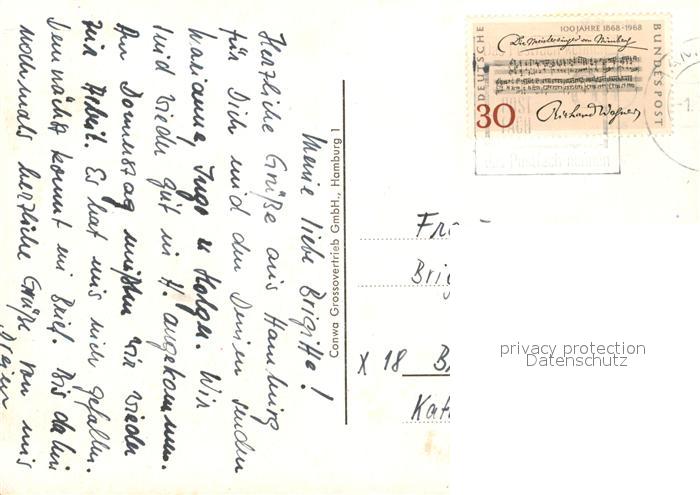 Meine liebe Brigitte!
Herzliche Grüße aus Hamburg
für Dich und den Deinen senden
Marianne, Ingo u. Holger. Wir
sind wieder gut in H. angekommen.
Am Donnerstag mußten wir wieder
zur Arbeit. Es hat uns gefallen.
Demnächst kommt ein Brief. Bis dahin
nochmals herzliche Grüße von uns
Conwa Grossovertrieb GmbH., Hamburg 1
DEUTSCHE BUNDESPOST
100 JAHRE 1868-1968
Die Meistersinger von Nürnberg
30
Richard Wagner
Brig
X 18 B
Kat
privacy protection
Datenschutz